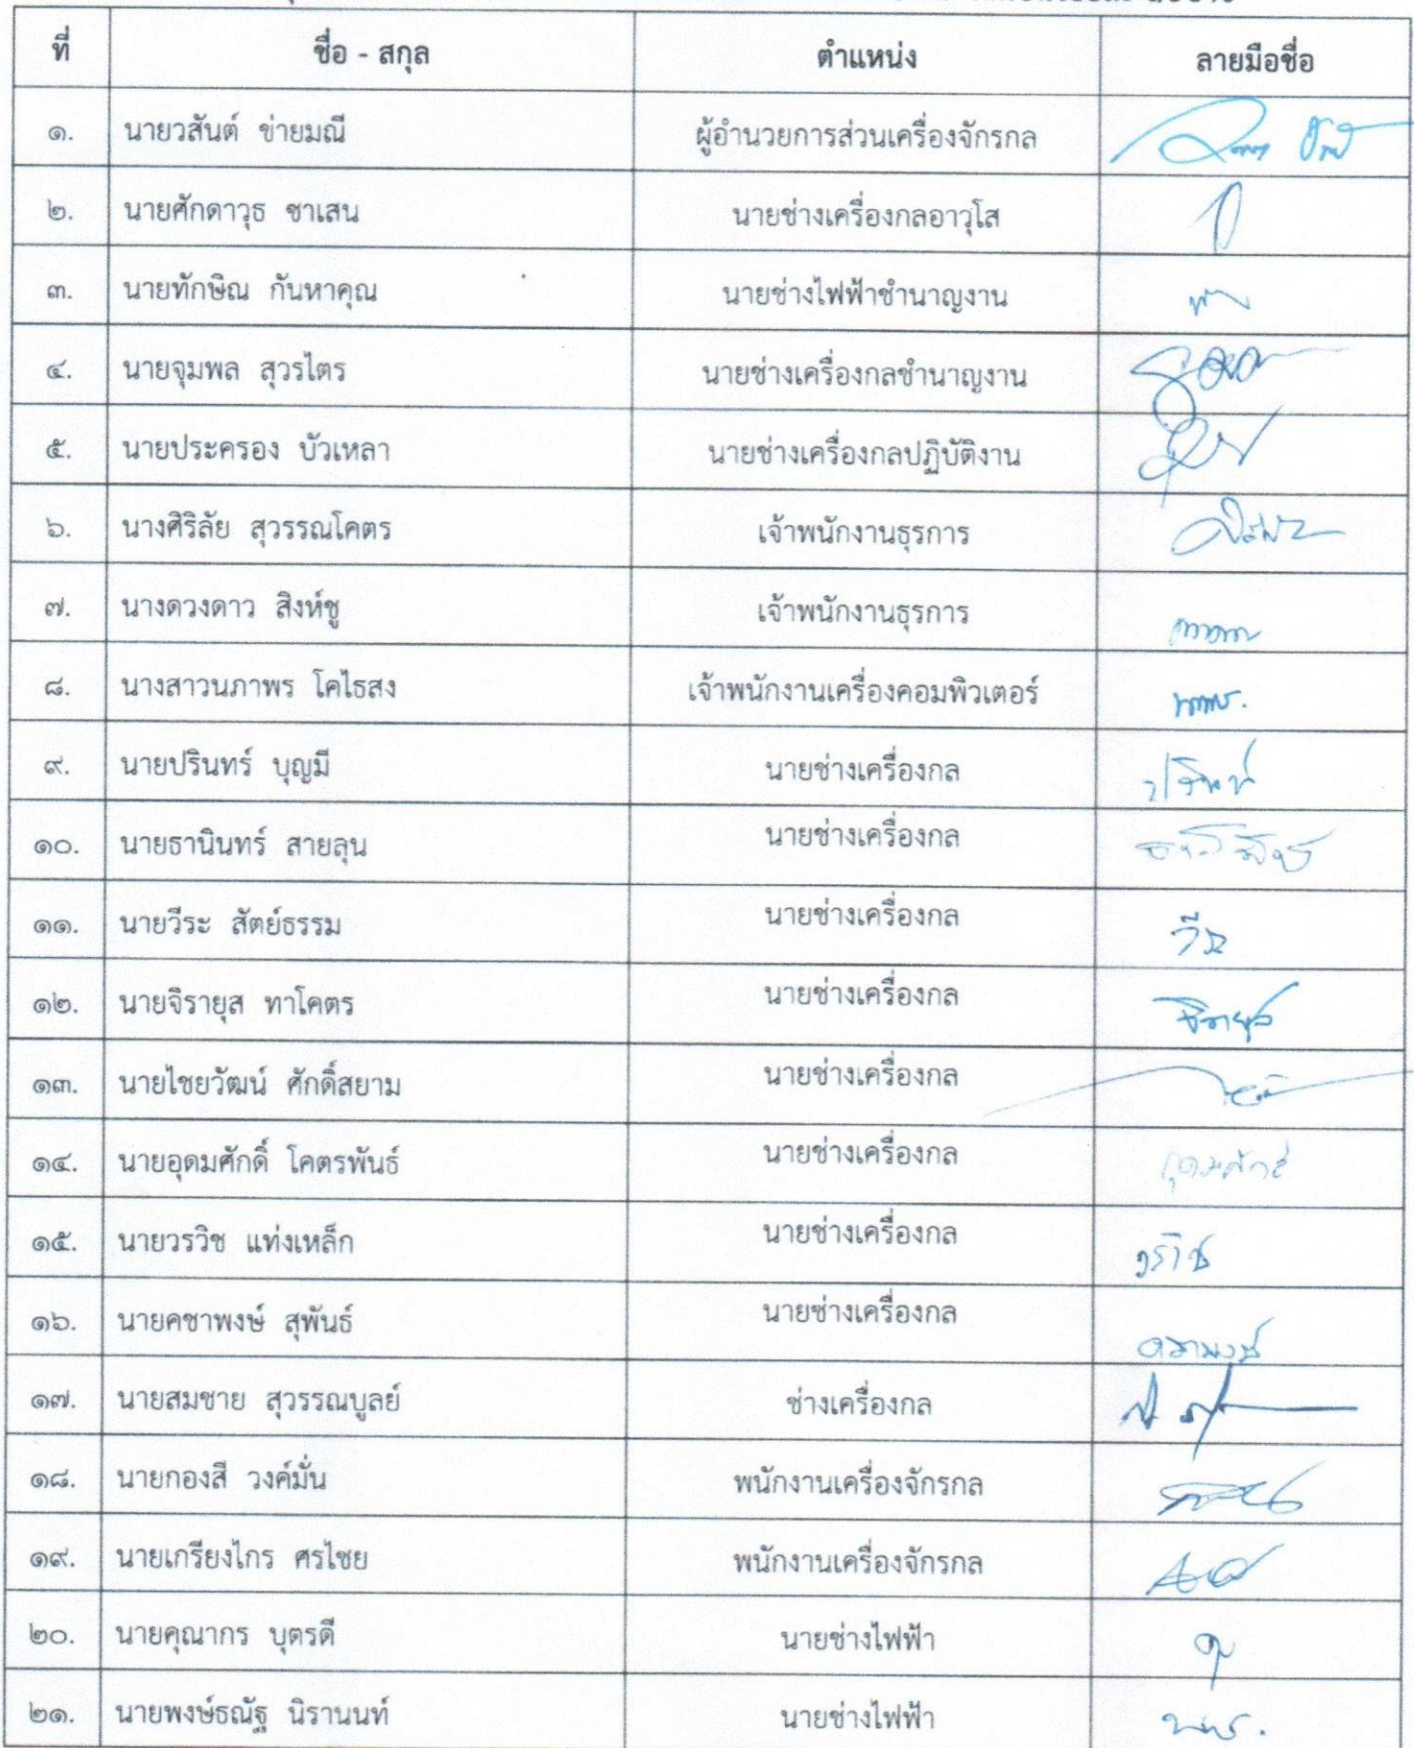 ที่ ชื่อ - สกุล ตำแหน่ง ลายมือชื่อ
๑. นายวสันต์ ข่ายมณี ผู้อำนวยการส่วนเครื่องจักรกล
๒. นายศักดาวุธ ซาเสน นายช่างเครื่องกลอาวุโส
๓. นายทักษิณ กันหาคุณ นายช่างไฟฟ้าชำนาญงาน
๔. นายจุมพล สุวรไตร นายช่างเครื่องกลชำนาญงาน
๕. นายประครอง บัวเหลา นายช่างเครื่องกลปฏิบัติงาน
๖. นางศิริลัย สุวรรณโคตร เจ้าพนักงานธุรการ
๗. นางดวงดาว สิงห์ชู เจ้าพนักงานธุรการ
๘. นางสาวนภาพร โคไธสง เจ้าพนักงานเครื่องคอมพิวเตอร์
๙. นายปรินทร์ บุญมี นายช่างเครื่องกล ปรินทร์
๑๐. นายธานินทร์ สายลุน นายช่างเครื่องกล
๑๑. นายวีระ สัตย์ธรรม นายช่างเครื่องกล วีระ
๑๒. นายจิรายุส ทาโคตร นายช่างเครื่องกล จิรายุส
๑๓. นายไชยวัฒน์ ศักดิ์สยาม นายช่างเครื่องกล
๑๔. นายอุดมศักดิ์ โคตรพันธ์ นายช่างเครื่องกล อุดมศักดิ์
๑๕. นายวรวิช แท่งเหล็ก นายช่างเครื่องกล วรวิช
๑๖. นายคชาพงษ์ สุพันธ์ นายช่างเครื่องกล คชาพงษ์
๑๗. นายสมชาย สุวรรณบูลย์ ช่างเครื่องกล
๑๘. นายกองสี วงค์มั่น พนักงานเครื่องจักรกล
๑๙. นายเกรียงไกร ศรไชย พนักงานเครื่องจักรกล
๒๐. นายคุณากร บุตรดี นายช่างไฟฟ้า
๒๑. นายพงษ์ธณัฐ นิรานนท์ นายช่างไฟฟ้า